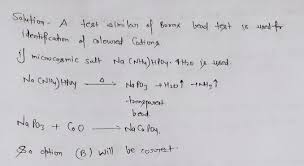 Solution - A test similar of Borax bead test is used for
Identification of coloured Cations
if microcosmic salt Na(NH4)HPO4.4H2O is used.
Na(NH4)HPO4 Δ→ NaPO3 + H2O↑ + NH3↑
transparent
bead
NaPO3 + CoO → NaCoPO4.
So option (B) will be correct.